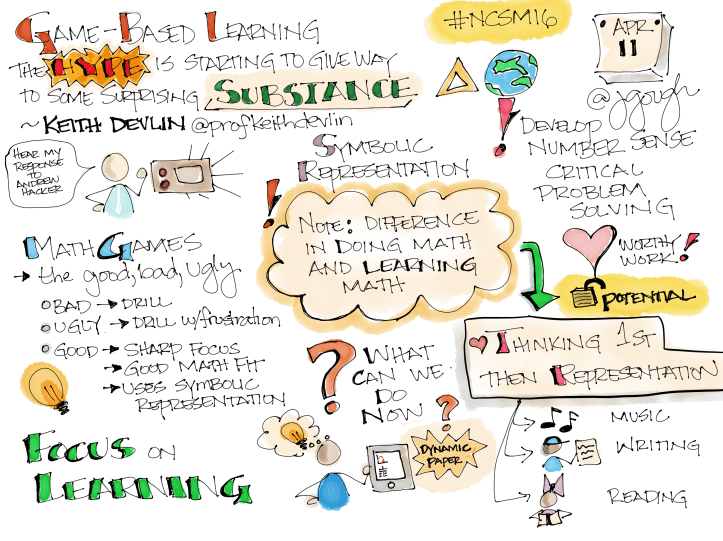 GAME-BASED LEARNING
THE HYPE IS STARTING TO GIVE WAY
TO SOME SURPRISING SUBSTANCE
~ KEITH DEVLIN @profkeithdevlin
HEAR MY
RESPONSE
TO
ANDREW
HACKER
#NCSM16
APR
11
@jgough
DEVELOP
NUMBER SENSE
CRITICAL
PROBLEM
SOLVING
WORTHY
WORK!
POTENTIAL
SYMBOLIC
REPRESENTATION
NOTE: DIFFERENCE
IN DOING MATH
AND LEARNING
MATH
MATH GAMES
→ the good, bad, ugly
BAD → DRILL
UGLY → DRILL w/frustration
GOOD → SHARP FOCUS
→ GOOD MATH FIT
→ USES SYMBOLIC
REPRESENTATION
FOCUS ON
LEARNING
? WHAT
CAN WE
DO
NOW ?
DYNAMIC
PAPER
THINKING 1ST
then REPRESENTATION
MUSIC
WRITING
READING